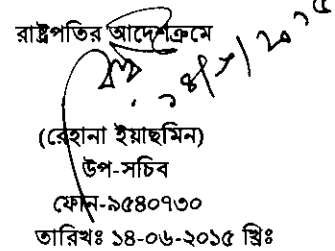 রাষ্ট্রপতির আদেশক্রমে
(রেহানা ইয়াছমিন)
উপ-সচিব
ফোন-৯৫৪০৭৩০
তারিখঃ ১৪-০৬-২০১৫ খ্রিঃ